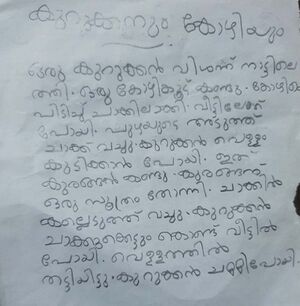 കുറുക്കനും കോഴിയും
ഒരു കുറുക്കൻ വിശന്ന് നാട്ടിലെ
ത്തി. ഒരു കോഴിക്കൂട് കണ്ടു. കോഴിയെ
പിടിച്ച് ചാക്കിലാക്കി. വീട്ടിലേക്ക്
പോയി. പുഴയുടെ അടുത്ത്
ചാക്ക് വച്ചു. കുറുക്കൻ വെള്ളം
കുടിക്കാൻ പോയി. ഇത്
കുരങ്ങൻ കണ്ടു. കുരങ്ങന്
ഒരു സൂത്രം തോന്നി. ചാക്കിൽ
കല്ലെടുത്ത് വച്ചു. കുറുക്കൻ
ചാക്കുകെട്ടും കൊണ്ട് വീട്ടിൽ
പോയി. വെള്ളത്തിൽ
തട്ടിയിട്ടു. കുറുക്കൻ ചമ്മിപോയി.